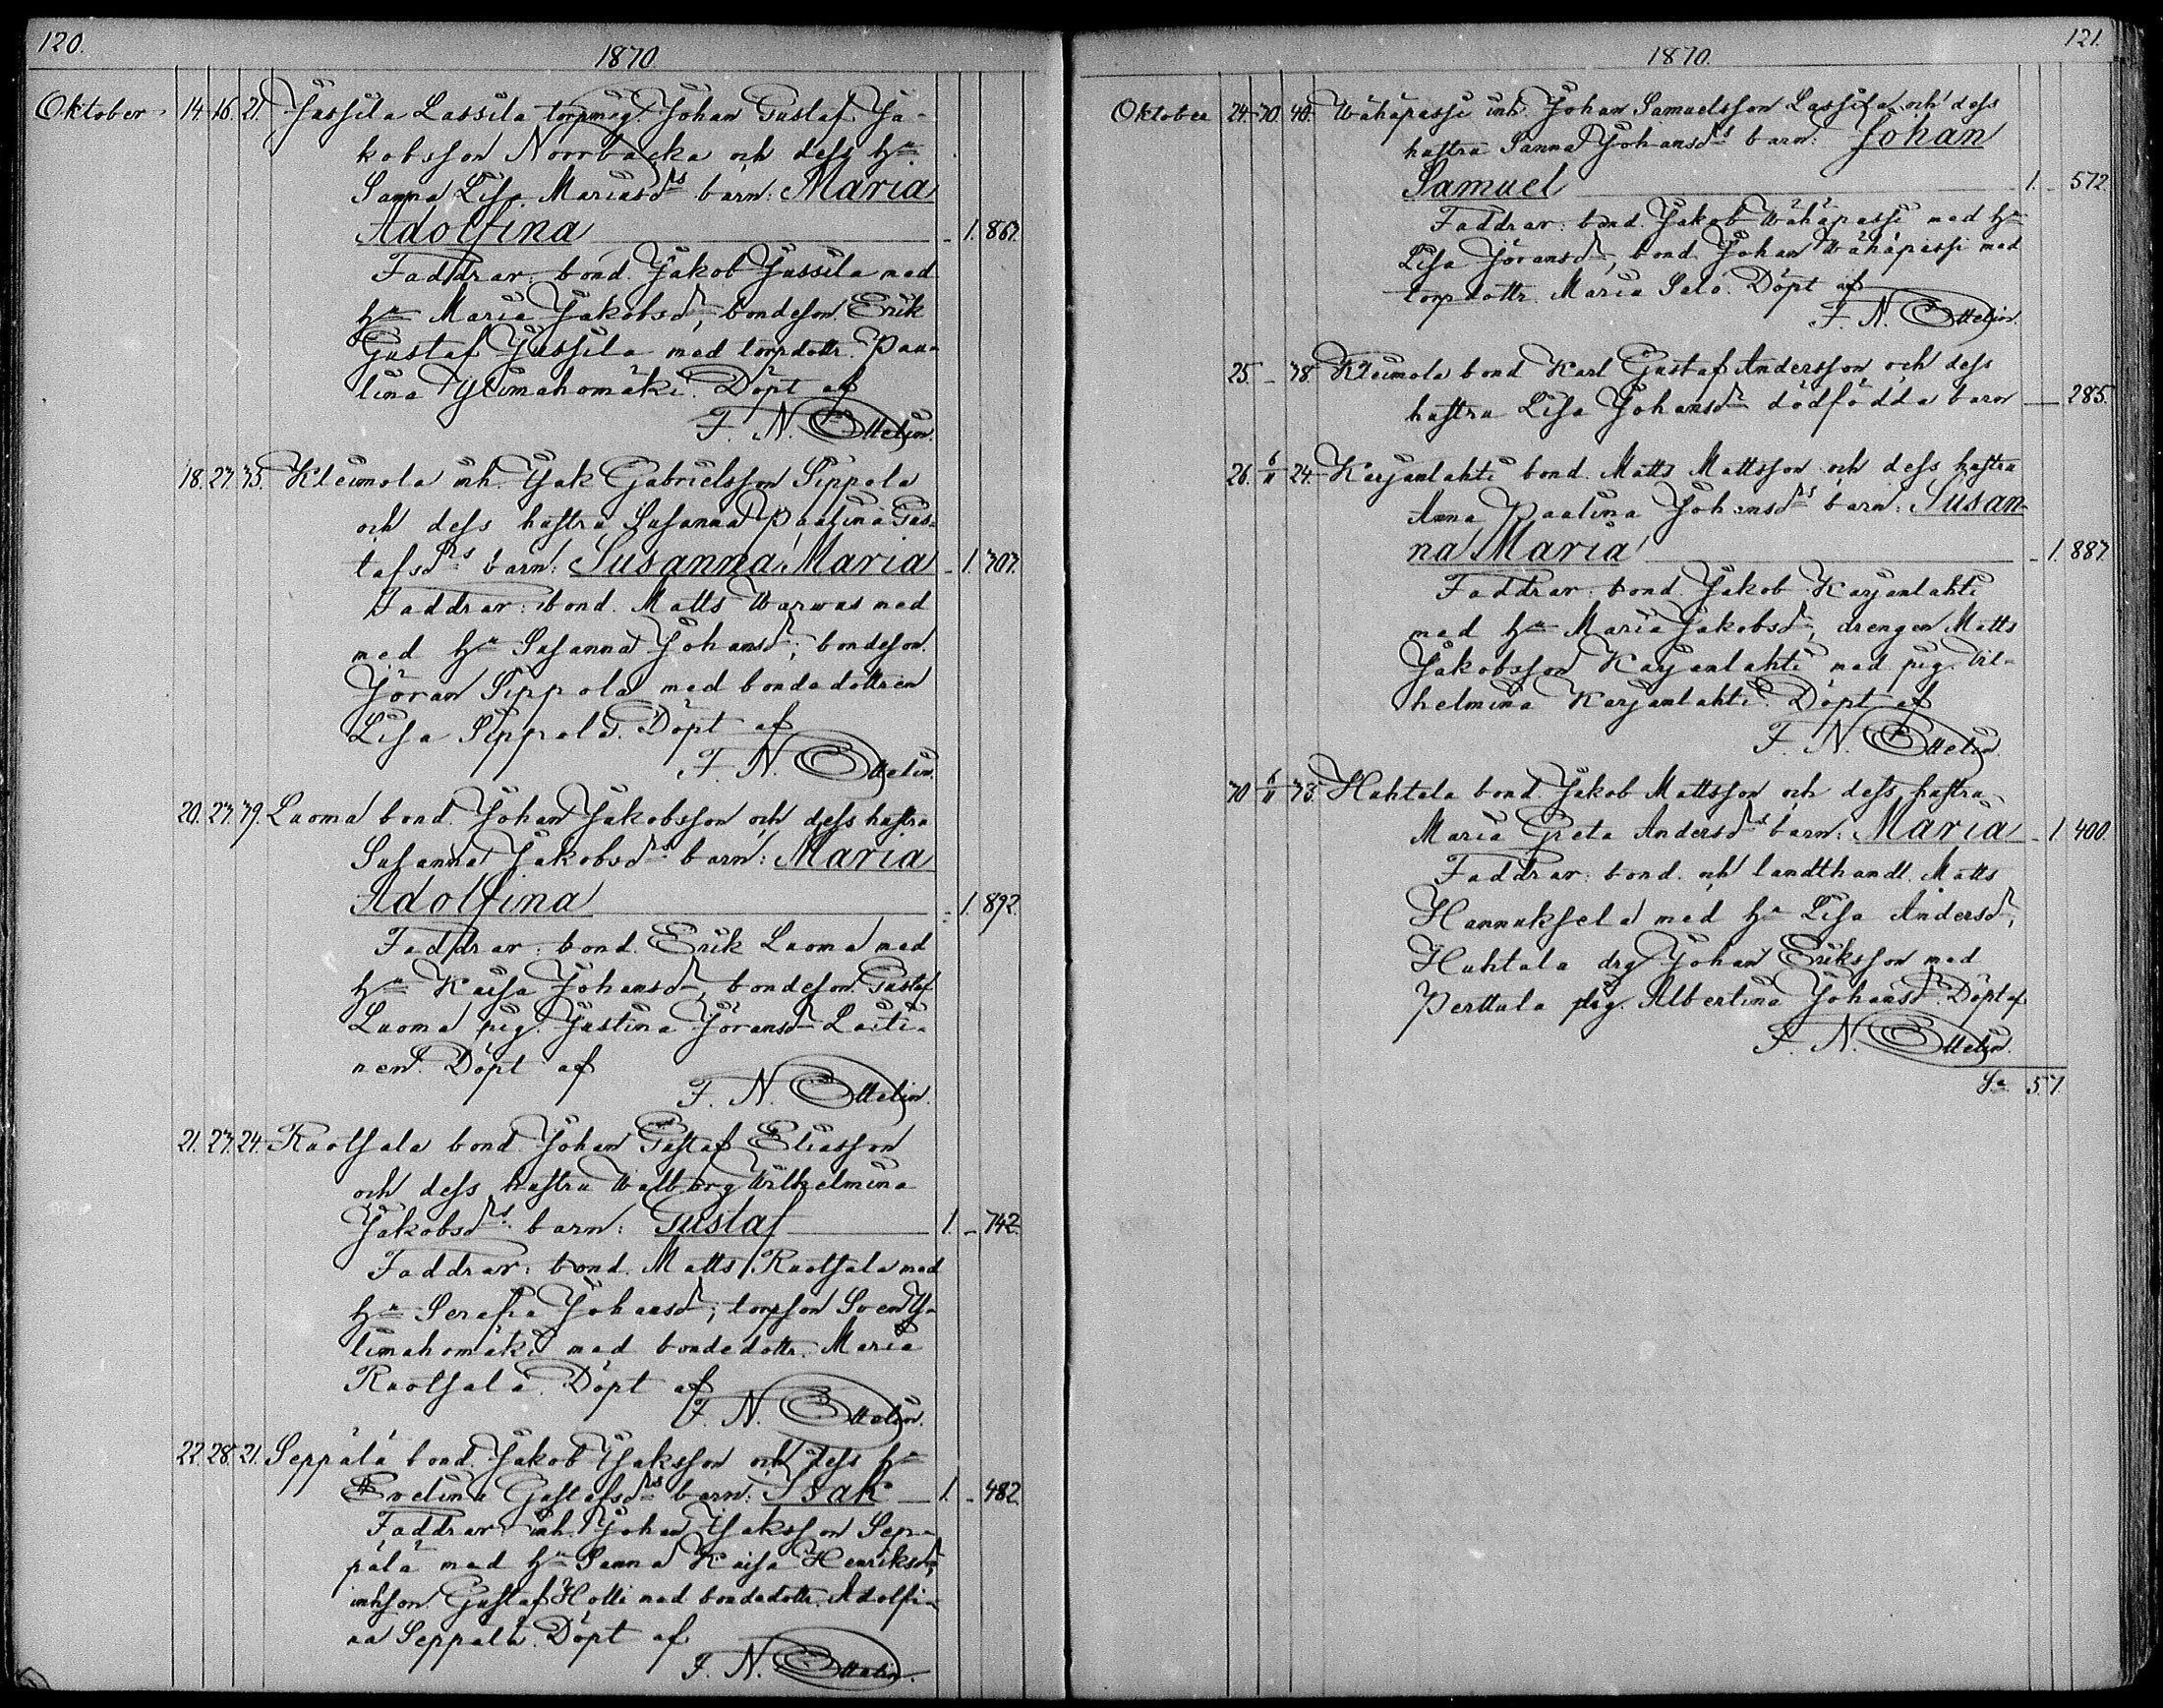 120.
1870.
Oktober 14. 16. 21. Jussila Lassila torpmåg. Johan Gustaf Ja-
kobsson Norrbacka och dess hu
Sanna Lisa Mariasdrs barn: Maria
Adolfina 1. 867.
Faddrar: bond. Jakob Jussila med
hu Maria Jakobsdr, bondeson. Erik
Gustaf Jussila med torpdottr. Pau-
lina Ylimahomäki. Döpt af
F. N. Ottelin.
18. 27. 75. Kleimola inh. Isak Gabrielsson Sippola
och dess hustru Susanna Paulina Gus-
tafsdrs barn: Susanna Maria 1. 707.
Faddrar: bond. Matts Warwas med
med hu Susanna Johansdr, bondeson.
Jöran Sippola med bondedottren
Lisa Sippola. Döpt af
F. N. Ottelin.
20. 27. 79. Luoma bond. Johan Jakobsson och dess hustru
Susanna Jakobsdrs barn: Maria
Adolfina 1. 892.
Faddrar: bond. Erik Luoma med
hu Kaisa Johansdr, bondeson. Gustaf
Luoma, pig. Justina Jöransdr Laiti-
nen. Döpt af
F. N. Ottelin.
21. 27. 24. Ruotsala bond. Johan Gustaf Eliasson
och dess hustru Walborg Wilhelmina
Jakobsdrs barn: Gustaf 1. 742.
Faddrar: bond. Matts Ruotsala med
hu Serafia Johansdr; torpson Sven Y-
limahomäki med bondedottr. Maria
Ruotsala. Döpt af
F. N. Ottelin.
22. 28. 21. Seppälä bond. Jakob Isaksson och dess hu
Evelina Gustafsdrs barn: Isak 1. 482.
Faddrar: inh. Johan Isaksson Sep-
pälä med hu Sanna Kaisa Henriksdr,
inhson. Gustaf Holli med bondedottr. Adolfi-
na Seppälä. Döpt af
F. N. Ottelin.
121.
1870.
Oktober 24. 30. 40. Wähäpassi inh. Johan Samuelsson Lassila och dess
hustru Sanna Johansdrs barn: Johan
Samuel 1. 572.
Faddrar: bond. Jakob Wähäpassi med hu
Lisa Jöransdr, bond. Johan Wähäpassi med
torpdottr. Maria Salo. Döpt af
F. N. Ottelin.
25. - 78. Kleimola bond. Karl Gustaf Andersson och dess
hustru Lisa Johansdrs dödfödda barn 285.
26. 6/11 24. Karjanlahti bond. Matts Mattsson och dess hustru
Anna Paulina Johansdrs barn: Susan-
na Maria 1. 887.
Faddrar: bond. Jakob Karjanlahti
med hu Maria Jakobsdr, drengen Matts
Jakobsson Karjanlahti med pig. Vil-
helmina Karjanlahti. Döpt af
F. N. Ottelin.
30 6/11 73. Huhtala bond. Jakob Mattsson och dess hustru
Maria Greta Andersdrs barn: Maria 1. 400.
Faddrar: bond. och landthandl. Matts
Hannuksela med hu Lisa Andersdr,
Huhtala drg Johan Eriksson med
Perttula pig. Albertina Johansdr. Döpt af
F. N. Ottelin.
Sa 57.